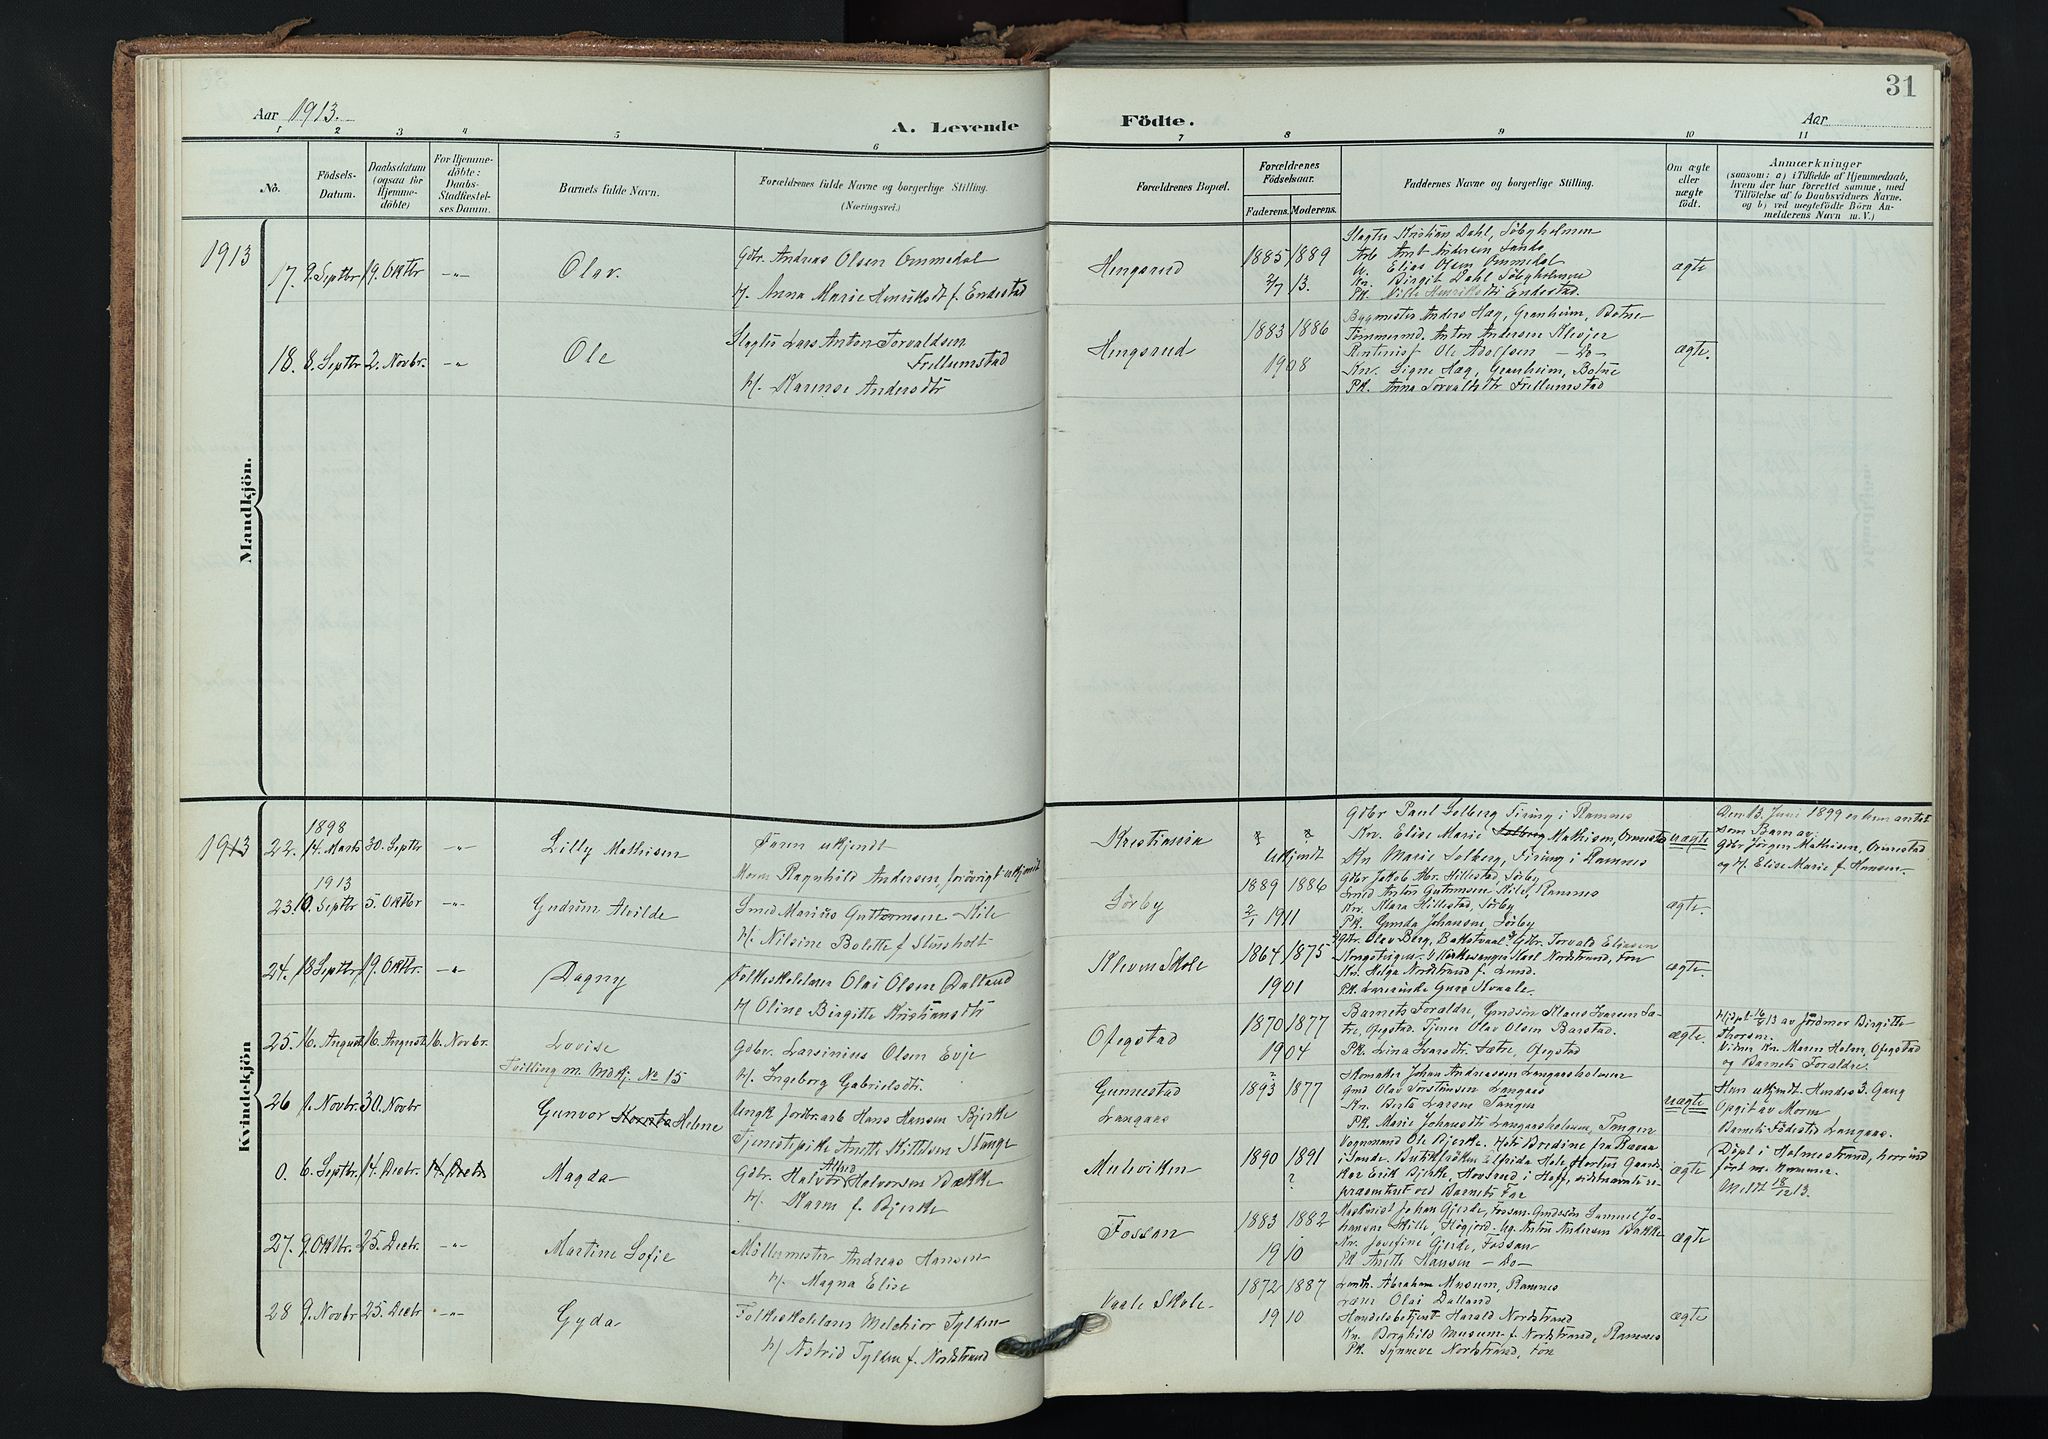 31
Aar 1913.
A. Levende
Födte.
Aar
1 2 3 4 5 6 7 8 9 10 11
No.
Födsels-
Datum.
Daabsdatum
(ogsaa for
Hjemme-
döbte)
For Hjemme-
döbte:
Daabs-
Stadfæstel-
ses Datum.
Barnets fulde Navn.
Forældrenes fulde Navne og borgerlige Stilling.
(Næringsvei.)
Forældrenes Bopæl.
Forældrenes
Födselsaar.
Faderens. Moderens.
Faddernes Navne og borgerlige Stilling.
Om ægte
eller
uægte
födt.
Anmærkninger
(saasom: a) i Tilfælde af Hjemmedaab,
hvem der har forrettet samme, med
Tilföielse af to Daabsvidners Navne.
og b) ved uægtefödte Börn An-
melderens Navn m. V.)
Mandkjön.
1913
17. 9. Septbr 19. Oktbr -"- Olav.
Gbr. Andreas Olsen Ommedal
H. Anna Marie Henriksdt f. Endestad
Hengsrud
1885 1889
2/7 13.
Slagter Kristian Dahl, Søbyholmen
Arb Arnt Andersen Sande
U. Elias Olsen Ommedal
Kv. Birgit Dahl Søbyholmene
Pk. Henriksdtr Endestad.
ægte
18. 8. Septbr 2. Novbr. -"- Ole
Slagter Lars Anton Torvaldsen
Frellumstad
H. Karense Andersdtr
Hengsrud
1883 1886
1908
Bygmester Anders Hæg, Granheim, Botne
Tømmermd. Anton Andersen Klesjer
Rentenist Ole Adolfsen - Do -
Kv. Signe Hæg, Granheim, Botne
Pk. Anna Torvaldsdtr Frellumstad
ægte.
Kvindekjön
1913
1898
22. 14. Marts 30. Septbr -"- Lilly Mathisen
Faren ukjendt
Moren Ragnhild Andersen, forövrigt ukjendt
Kristiania
? ?
Ukjendt
Gbr Paul Solberg Firing i Ramnes
Kv. Elise Marie Solberg Mathisen, Ormestad
Kv Marie Solberg, Firing i Ramnes
uægte
Den 13. Juni 1899 er hun antat
som Barn av:
Gbr Jörgen Mathisen, Ormestad
og H. Elise Marie f. Hansen.
1913
23. 10. Septbr 5. Oktbr -"- Gudrun Alvilde
Smed Marius Guttormsen - Kile
H. Nilsine Bolette f Slusholt
Sørby
1889 1886
2/1 1911
Gbr Jakob Hr. Hillestad, Sörby
Smed Anton Gutormsen Kile, Ramnes
Kv. Klara Hillestad, Sörby
Pk. Gunda Johansen Sörby
ægte.
24. 18 Septbr 19. Oktbr. -"- Dagny
Folkeskolelærer Olai Olsen Dalland
H Oline Birgitte Kristiansdtr
Kleven Skole
1864 1875
1901
Gbr. Olav Berg, Bakstvaal, Gbr. Torvald Eliasen
Kirkesanger Karl Nordstrand, Fon
Kv. Helga Nordstrand f. Lund.
Pk. Lærerinde
ægte
25. 16. August 16. August 16. Novbr. Lovise
Tvilling m. Mdkj. No 15
Gbr. Larsinius Olsen Evje
H. Ingeborg Gabrielsdtr.
Ofegstad
1870 1877
1904
Barnets Foraldre, Gmdsön Klaus Ivarsen Sæ-
tre, Ofegstad. Tjener Olav Olsen Barstad.
Pk. Lina Ivarsdtr Sætre, Ofegstad
ægte.
Hjdpt 16/8 13 av Jordmor Birgitte
Thorsen.
Vidner Kv. Maren Holm, Ofegstad
og Barnets Foraldre.
26 1. Novbr 30. Novbr Gunvor Helene
Ungk Jordbrarb Hans Hansen Bjerke
Tjenestepike Anette Kittelsen Stange
Gunnestad
Langaas
?
1893 1877
Skomaker Johan Andreassen Langaasholmen
Gmd Olav Torstensen Langaas
Kv. Berta Larsen Tangen
Pk. Marie Johansdtr Langaasholmen, Tangen
uægte
Han ukjendt. Hendes 3. Gang
Opgit av Moren
Barnets Födested Langaas.
0. 6. Septbr. 14. Decbr. 14 Decbr Magda
Alfred
Gbr. Halvor Halvorsen Bække
H. Karen f. Bjerke
Mulviken
1890 1891
?
Vognmand Ole Bjerke. Hoti Bredine fra Ræna
i Sande. Butikfröken Elfrida Hole Hortus Gaard-
Ker Erik Bjerke, Hovsrud i Hoff, sidstnævnte re-
præsentert ved Barnets Far
ægte
Döpt i Holmestrand, her ind
fört m. Nummer.
Meldt 18/12 13.
27. 9. Oktbr. 25. Decbr. -"- Martine Sofie
Möllermester Andreas Hansen
H. Magna Elise
Fossan
1883 1882
1910
Maskinist Johan Gjerde, Fossan. Gmdsön Samuel Jo-
hansen Kille Högjord. Ug. Anton Andersen Bakke
Kv. Josefine Gjerde, Fossan
Pk Anette Hansen - Do -
ægte
28 9. Novbr 25. Decbr -"- Gyda
Folkeskolelærer Melchior Tylden
H/ Astrid Tylden f. Nordstrand
Vaale Skole.
1872 1887
1910
Lensm. Abraham Musum, Ramnes
Lærer Olai Dalland
Handelsbetjent Harald Nordstrand
Kv. Borghild Musum f. Nordstrand, Ramnes
Pk. Synneve Nordstrand, Fon
ægte